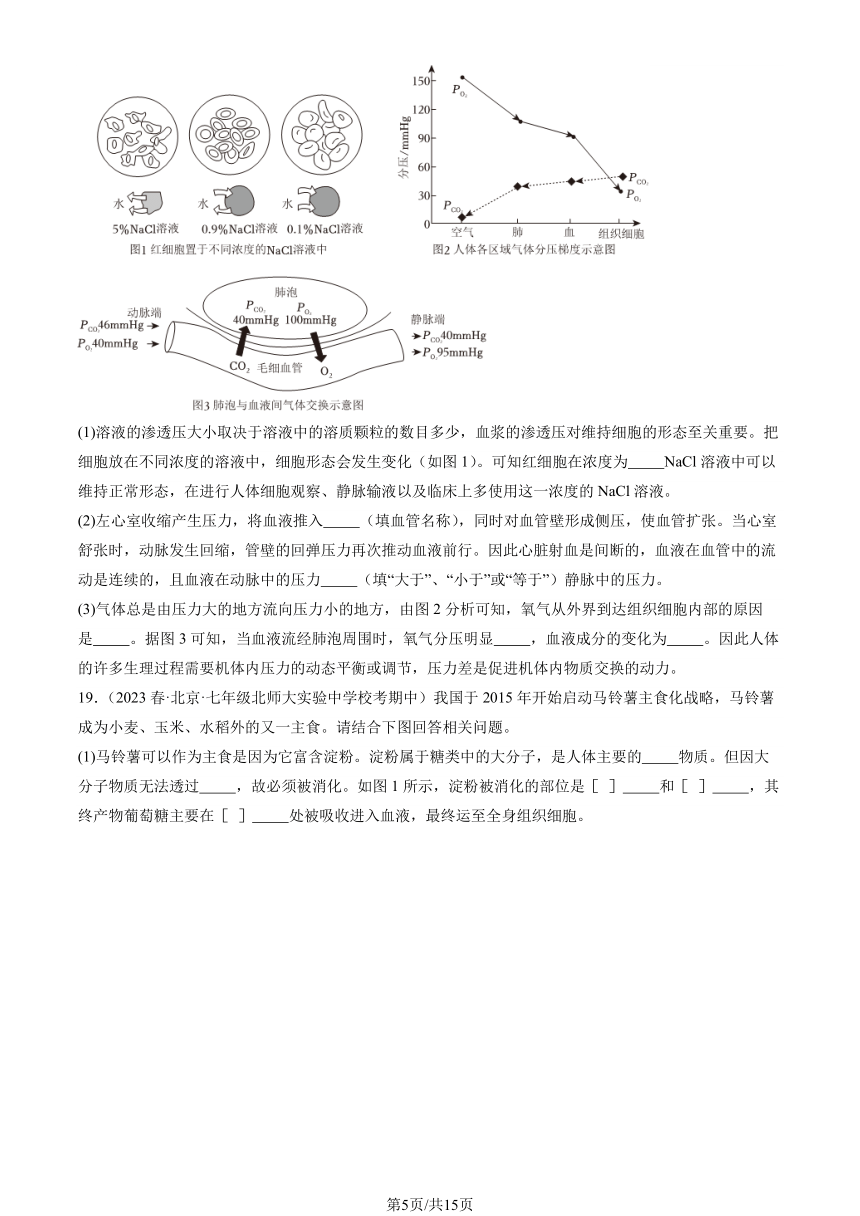 水
水
水
5%NaCl溶液 0.9%NaCl溶液 0.1%NaCl溶液
图1 红细胞置于不同浓度的NaCl溶液中
分压/mmHg
150
120
90
60
30
0
PO₂
PCO₂
PCO₂
PO₂
空气 肺 血 组织细胞
图2 人体各区域气体分压梯度示意图
肺泡
PCO₂ PO₂
40mmHg 100mmHg
动脉端
PCO₂46mmHg
PO₂40mmHg
静脉端
PCO₂40mmHg
PO₂95mmHg
CO₂ 毛细血管 O₂
图3 肺泡与血液间气体交换示意图
(1)溶液的渗透压大小取决于溶液中的溶质颗粒的数目多少，血浆的渗透压对维持细胞的形态至关重要。把
细胞放在不同浓度的溶液中，细胞形态会发生变化（如图1）。可知红细胞在浓度为_____NaCl 溶液中可以
维持正常形态，在进行人体细胞观察、静脉输液以及临床上多使用这一浓度的 NaCl 溶液。
(2)左心室收缩产生压力，将血液推入_____（填血管名称），同时对血管壁形成侧压，使血管扩张。当心室
舒张时，动脉发生回缩，管壁的回弹压力再次推动血液前行。因此心脏射血是间断的，血液在血管中的流
动是连续的，且血液在动脉中的压力_____（填“大于”、“小于”或“等于”）静脉中的压力。
(3)气体总是由压力大的地方流向压力小的地方，由图 2 分析可知，氧气从外界到达组织细胞内部的原因
是_____。据图 3 可知，当血液流经肺泡周围时，氧气分压明显_____，血液成分的变化为_____。因此人体
的许多生理过程需要机体内压力的动态平衡或调节，压力差是促进机体内物质交换的动力。
19．（2023 春·北京·七年级北师大实验中学校考期中）我国于 2015 年开始启动马铃薯主食化战略，马铃薯
成为小麦、玉米、水稻外的又一主食。请结合下图回答相关问题。
(1)马铃薯可以作为主食是因为它富含淀粉。淀粉属于糖类中的大分子，是人体主要的_____物质。但因大
分子物质无法透过_____，故必须被消化。如图 1 所示，淀粉被消化的部位是［ ］_____和［ ］_____，其
终产物葡萄糖主要在［ ］_____处被吸收进入血液，最终运至全身组织细胞。
第5页/共15页